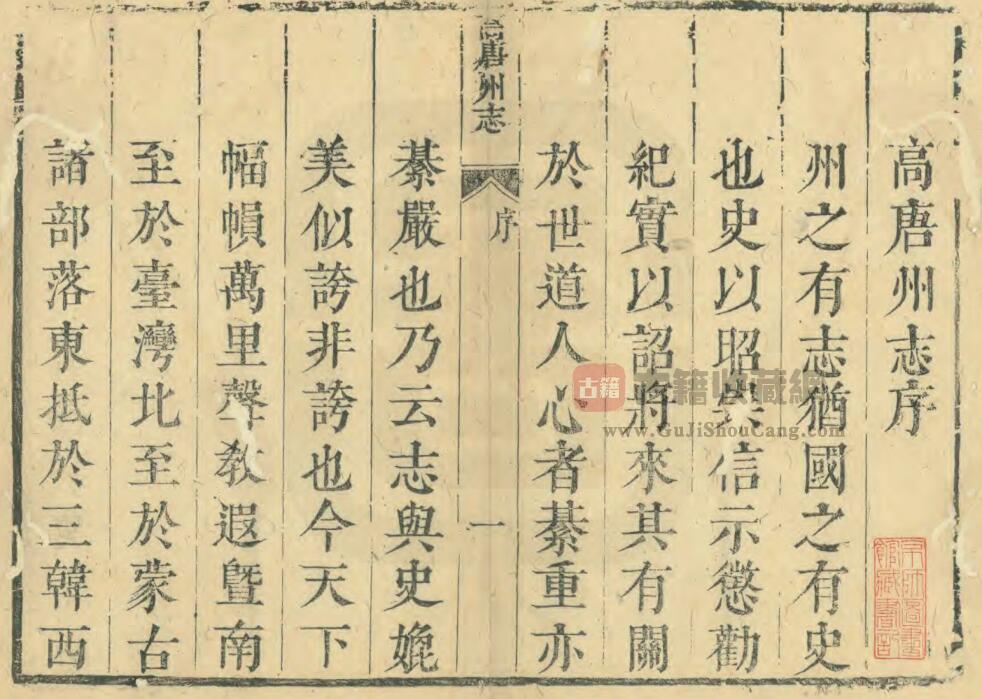 高唐州志序
州之有志猶國之有史
也史以昭信示懲勸
紀實以詔將來其有關
於世道人心者綦重亦
高唐州志
序
一
綦嚴也乃云志與史娩
美似誇非誇也今天下
幅幀萬里聲教遐曁南
至於臺灣北至於蒙古
諸部落東抵於三韓西
古籍
古籍收藏網
www.GuJiShouCang.com